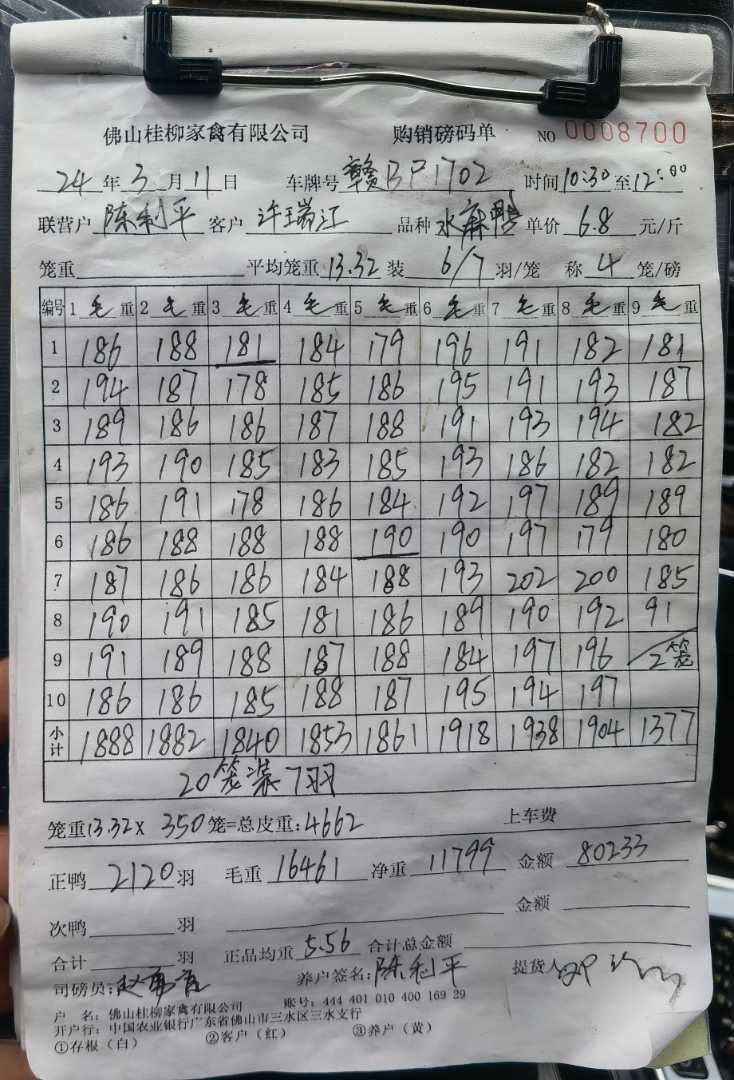 佛山桂柳家禽有限公司 购销磅码单 NO 0008700
24 年 3 月 11 日 车牌号 赣BP1702 时间 10:30 至 12:00
联营户 陈利平 客户 许瑞江 品种 水麻鸭 单价 6.8 元/斤
笼重 平均笼重 13.32 装 6/7 羽/笼 称 4 笼/磅
编号 1 毛 重 2 毛 重 3 毛 重 4 毛 重 5 毛 重 6 毛 重 7 毛 重 8 毛 重 9 毛 重
1 186 188 181 184 179 196 191 182 181
2 194 187 178 185 186 195 191 193 187
3 189 186 186 187 188 191 193 194 182
4 193 190 185 183 185 193 186 182 182
5 186 191 178 186 184 192 197 189 189
6 186 188 188 188 190 190 197 179 180
7 187 186 186 184 188 193 202 200 185
8 190 191 185 181 186 189 190 192 91
9 191 189 188 187 188 184 197 196 /2笼
10 186 186 185 188 187 195 194 197
小计 1888 1882 1840 1853 1861 1918 1938 1904 1377
20笼装7羽
笼重 13.32 x 350 笼=总皮重: 4662 上车费
正鸭 2120 羽 毛重 16461 净重 11799 金额 80233
次鸭 羽 金额
合计 羽 正品均重 5.56 合计总金额
司磅员: 养户签名: 陈利平 提货人
户 名: 佛山桂柳家禽有限公司 账号: 444 401 010 400 169 29
开户行: 中国农业银行广东省佛山市三水区三水支行
①存根（白） ②客户（红） ③养户（黄）